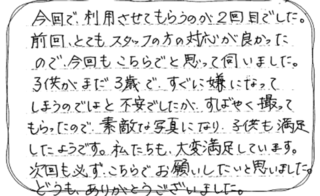 今回で、利用させてもらうのが2回目でした。
前回、とてもスタッフの方の対応が良かった
ので、今回もこちらでと思って伺いました。
子供がまだ3歳で、すぐに嫌になって
しまうのではと不安でしたが、すばやく撮って
もらったので、素敵な写真になり、子供も満足
したようです。私たちも、大変満足しています。
次回も必ず、こちらでお願いしたいと思いました。
どうも、ありがとうございました。